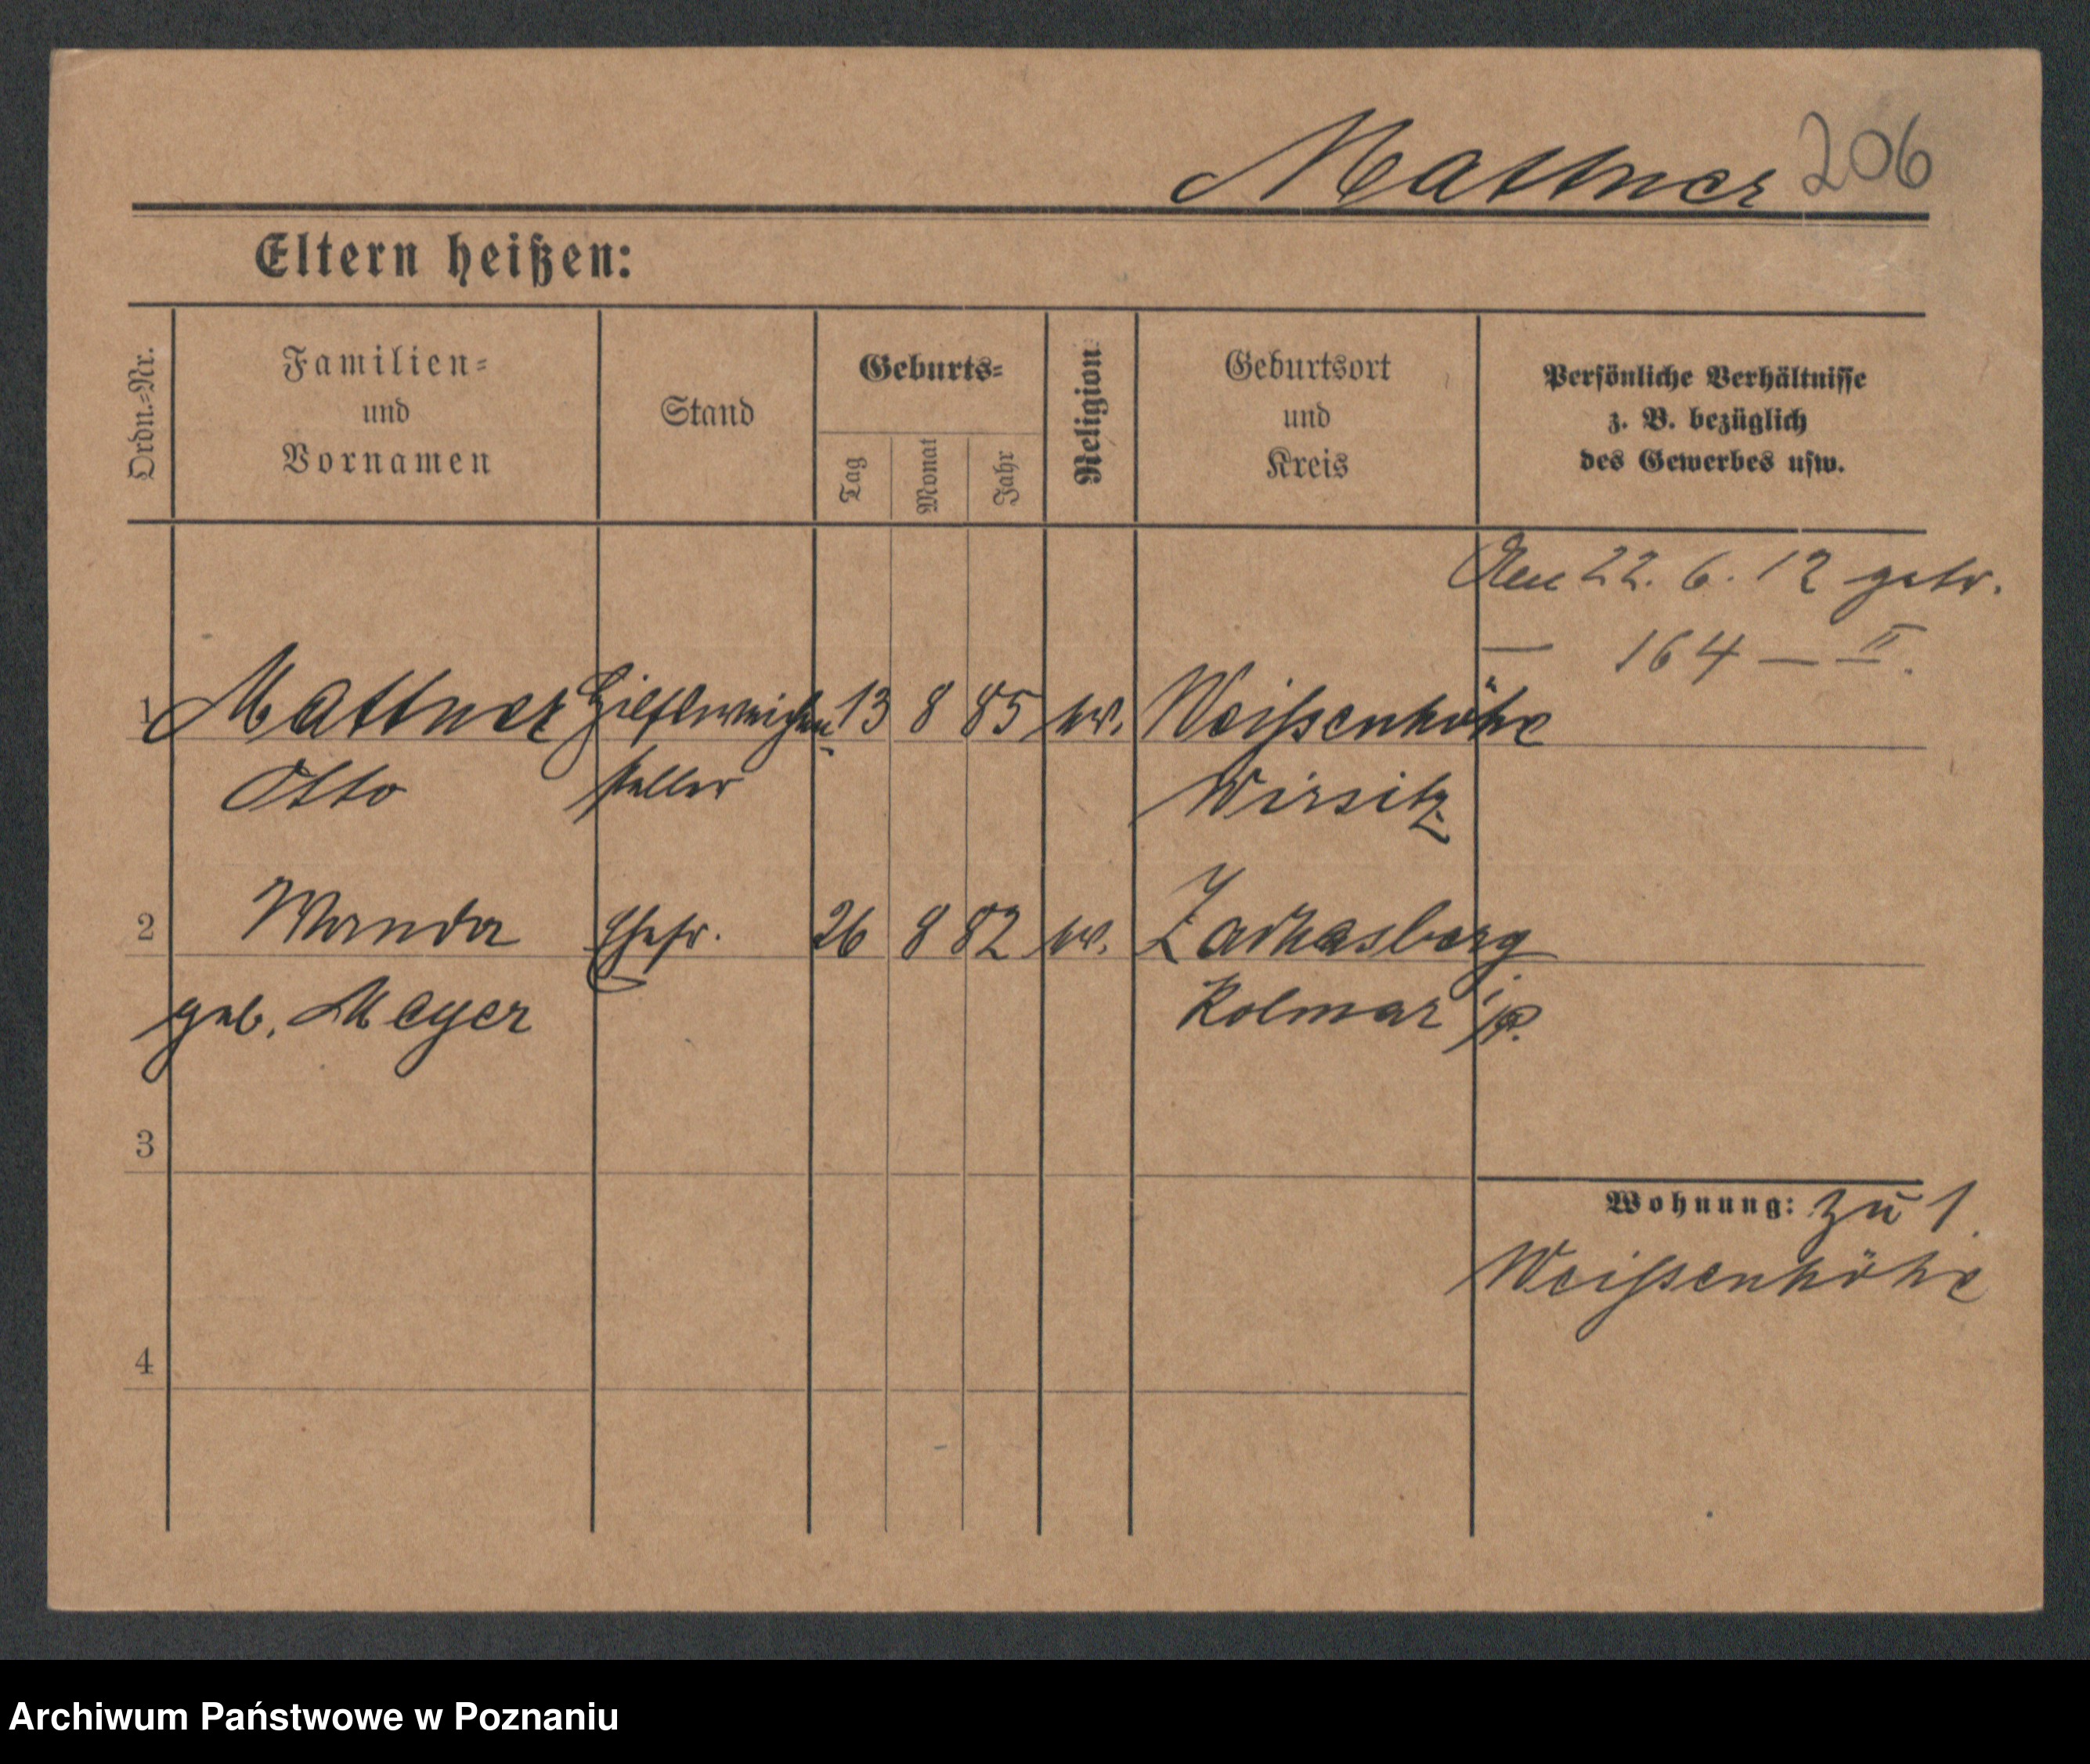 Mattner 206
Eltern heißen:
Ordn.-Nr.
Familien-
und
Vornamen
Stand
Geburts-
Tag
Monat
Jahr
Religion
Geburtsort
und
Kreis
Persönliche Verhältnisse
z. B. bezüglich
des Gewerbes usw.
Den 22. 6. 12 getr.
— 164 — II.
1 Mattner Hilfsweichen- 13 8 85 ev. Weißenhöhe
Otto steller Wirsitz
2 Wanda Ehefr. 26 8 82 ev. Zachasberg
geb. Meyer Kolmar i/P.
3
Wohnung: zu 1
Weißenhöhe
4
Archiwum Państwowe w Poznaniu